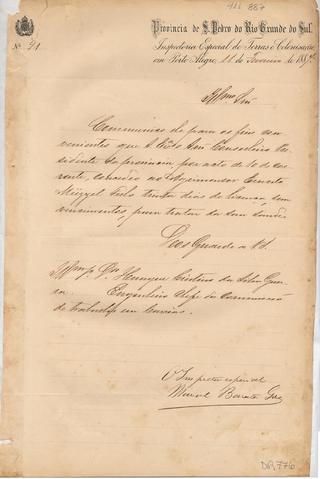 416 887
Provincia de S. Pedro do Rio Grande do Sul.
Nº 31
Inspectoria Especial de Terras e Colonisação
em Porto Alegre, 11 de Fevereiro de 1887
Illmo Snr
Communico-lhe para os fins con-
venientes que o Exmo Snr Conselheiro Pre-
sidente da provincia por acto de 10 do cor-
rente, concedeo ao Agrimensor Ernesto
trinta dias de licença, sem
vencimentos, para tratar da sua saúde.
Deos Guarde a VS.
Illmo Snr Dor Henrique
Engenheiro Chefe da Commissão
de trabalhos em Caxias.
O Inspector especial
Manoel Barata Góes
DR.776